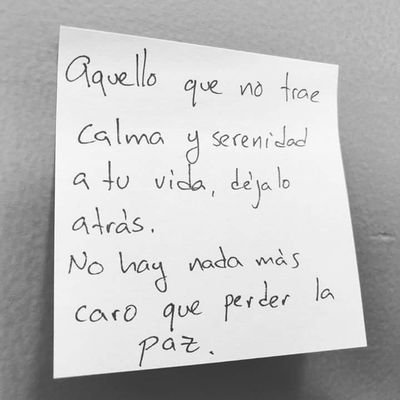 Aquello que no trae
calma y serenidad
a tu vida, déjalo
atrás.
No hay nada más
caro que perder la
paz.